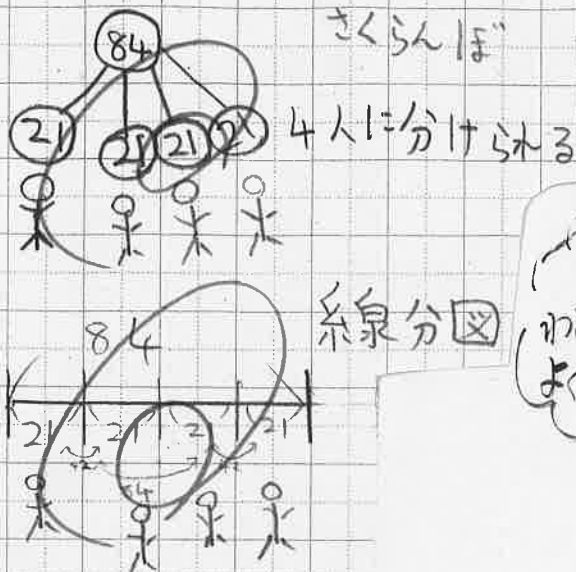 さくらんぼ
84
21 21 21 21
4人に分けられる
線分図
84
21 21 2 21